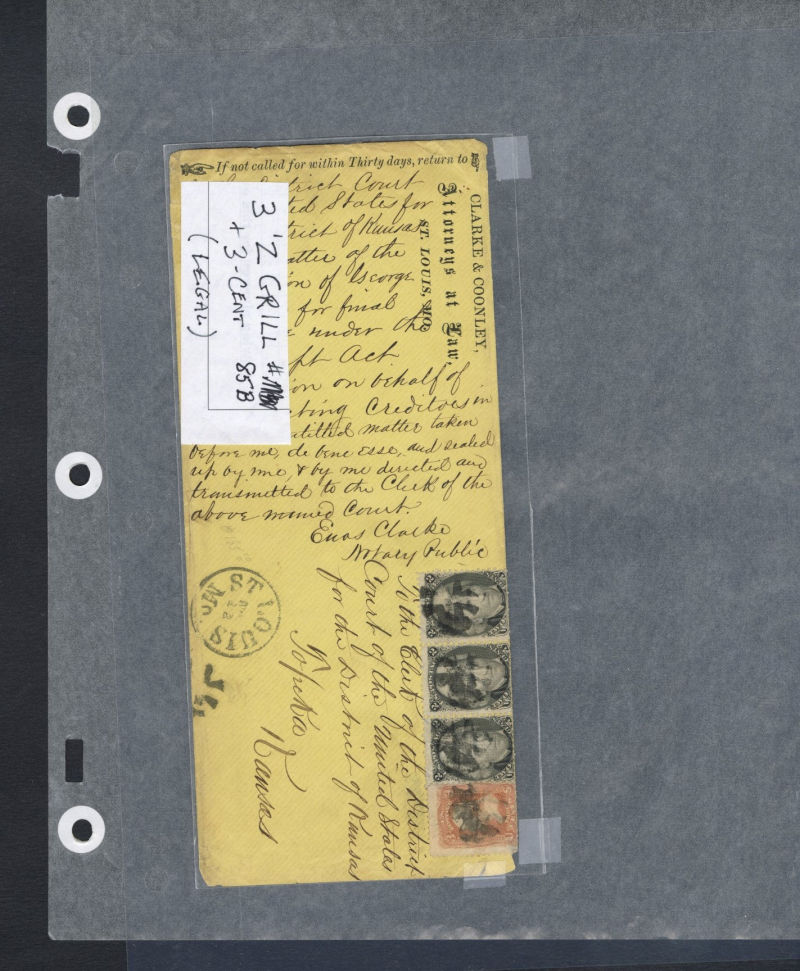 If not called for within Thirty days, return to
CLARKE & COONLEY,
Attorneys at Law,
ST. LOUIS, MO.
District Court
States for
of Kansas
of the
of George
for final
under the
Act
on behalf of
Creditors in
matter taken
before me, de bene esse, and sealed
up by me, & by me directed and
transmitted to the Clerk of the
above named Court.
Enos Clarke
Notary Public
3 'Z GRILL #
85B
+ 3-CENT
(LEGAL)
To the Clerk of the District
Court of the United States
for the District of Kansas
Topeka
Kansas
ST LOUIS
MO